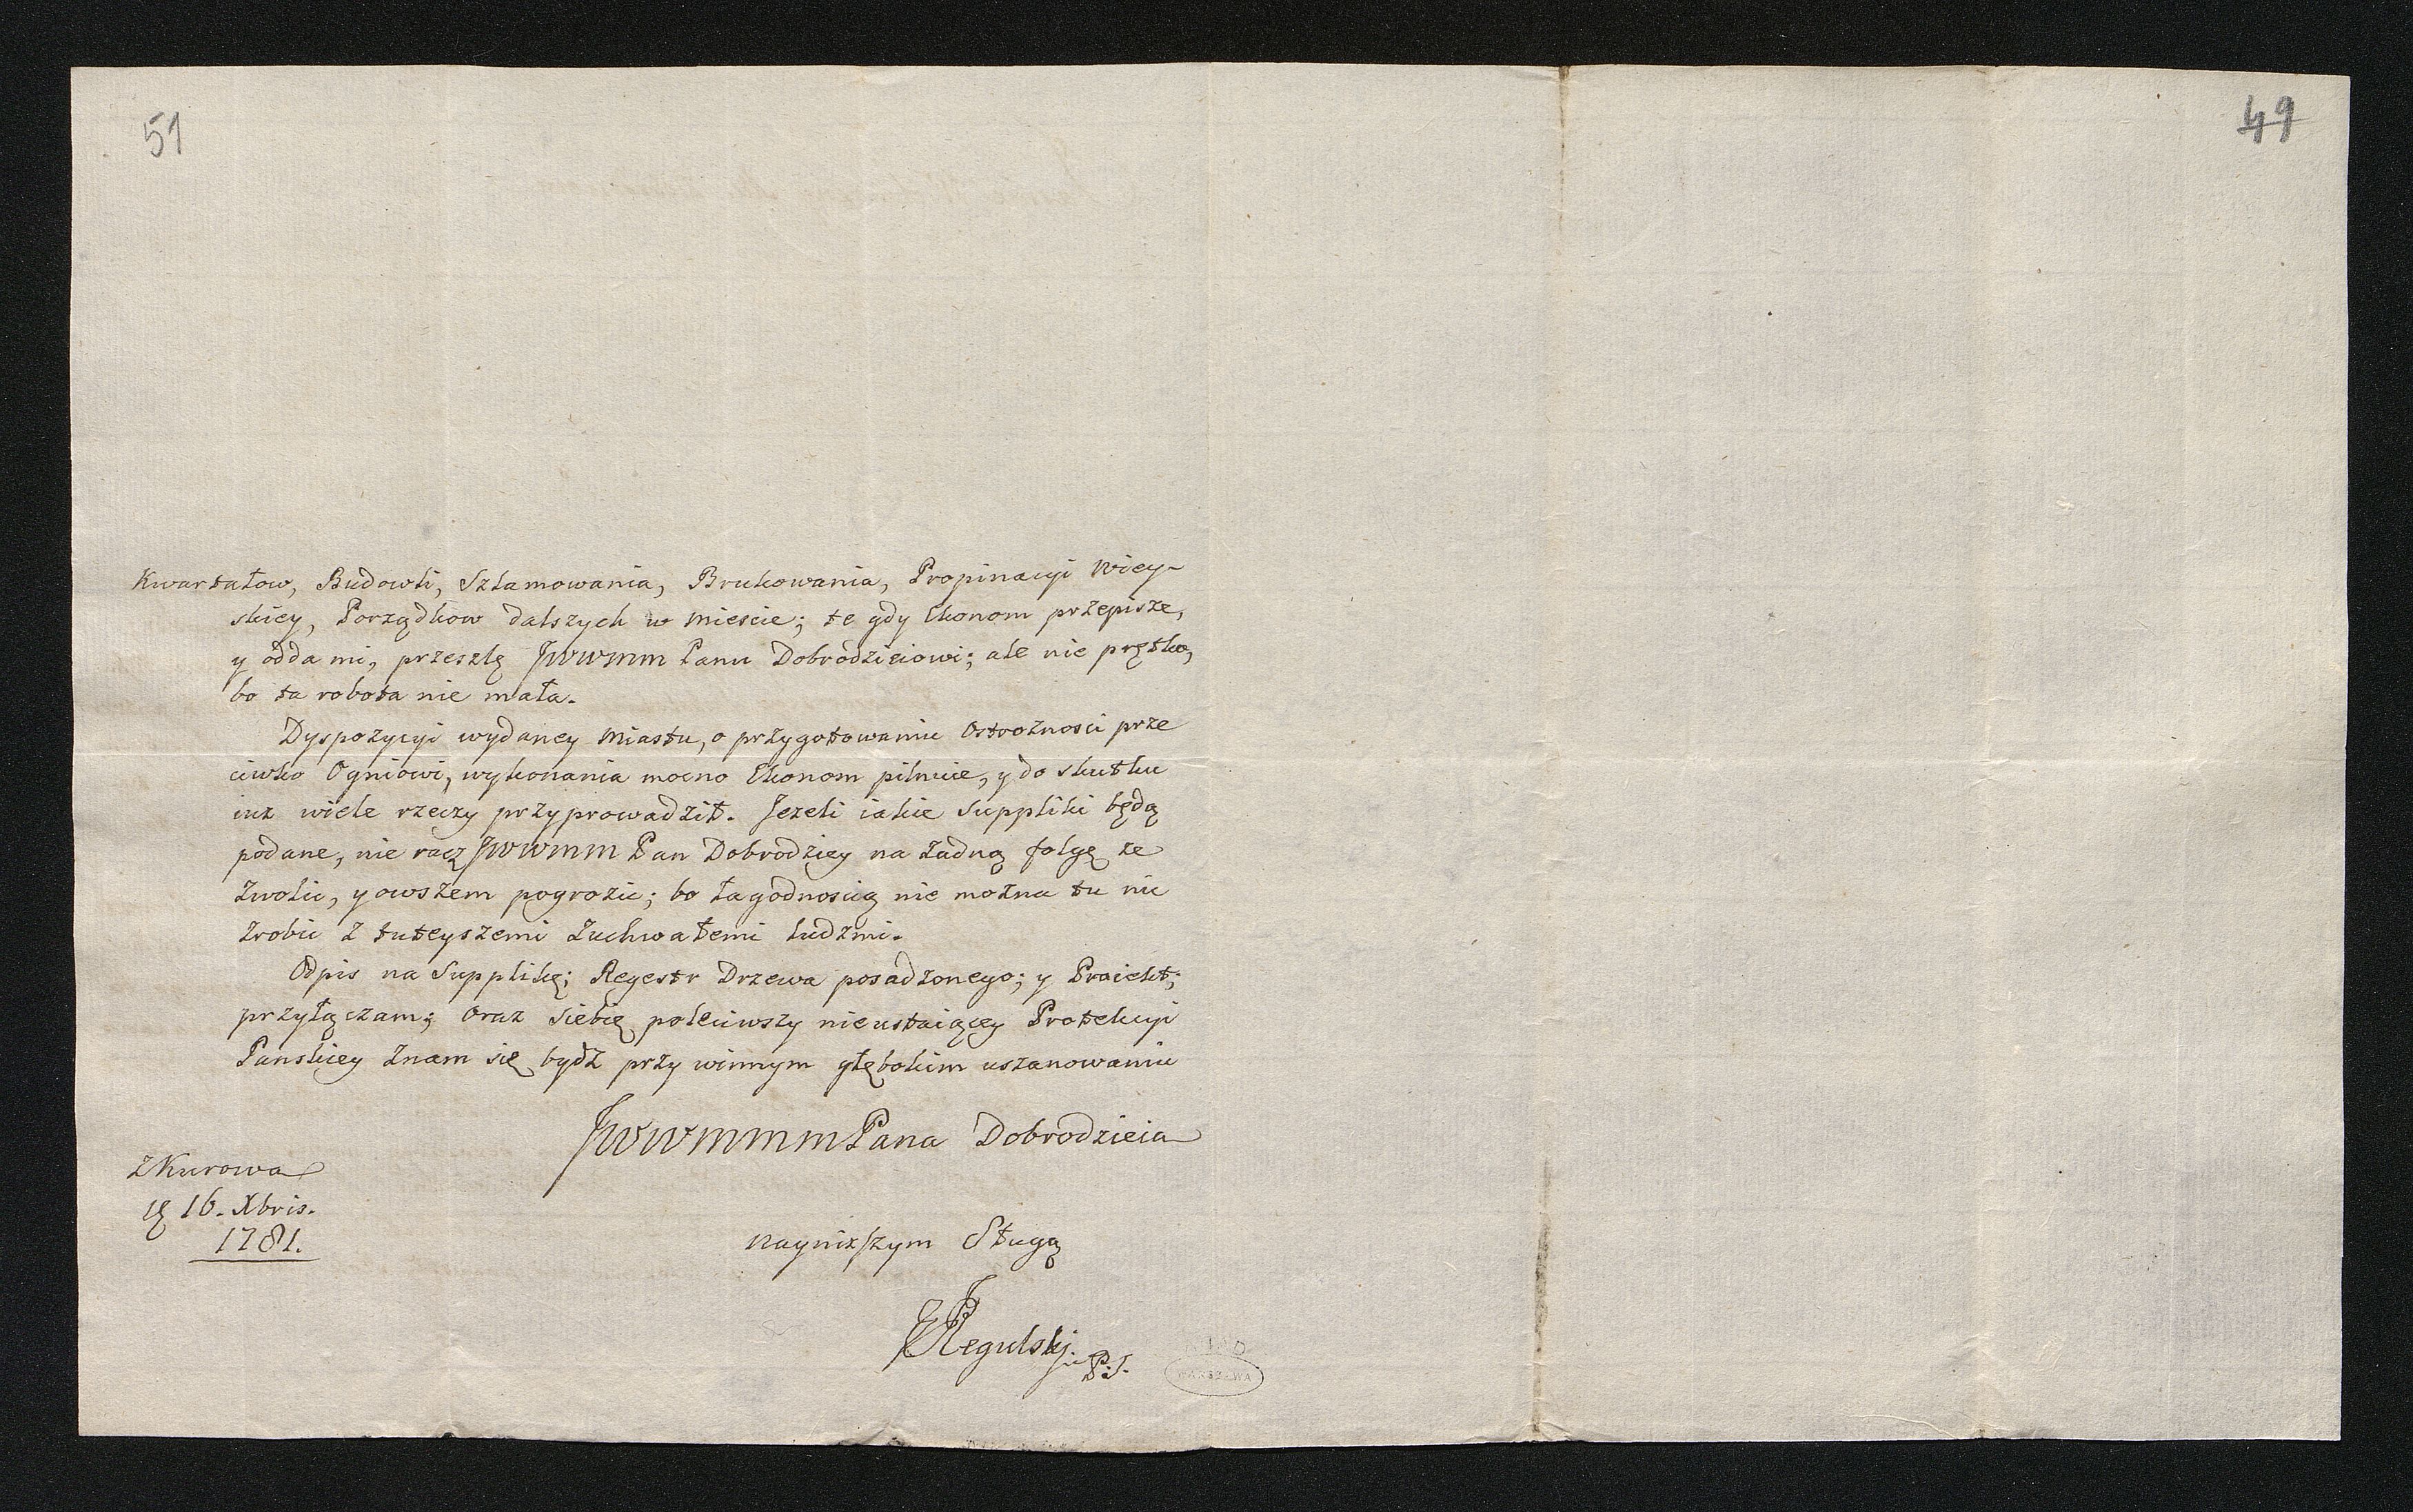 51
49
Kwartałow, Budowli, Szlamowania, Brukowania, Propinacyi Wiey-
skiey, Porządkow dalszych w Miescie; te gdy Ekonom przepisze,
y odda mi, przeszlę JWWMM Panu Dobrodzieiowi; ale nie prętko,
bo ta robota nie mała.
Dyspozycyi wydaney Miastu, o przygotowaniu Ostrożnosci prze
ciwko Ogniowi, wykonania mocno Ekonom pilnuie, y do skutku
iuż wiele rzeczy przyprowadził. Jeżeli iakie Suppliki będą
podane, nie racz JWWMM Pan Dobrodziey na żadną folgę ze
zwolic, y owszem pogrozic; bo łagodnoscią nie można tu nic
zrobic z tuteyszemi zuchwałemi ludzmi.
Odpis na Supplikę; Regestr Drzewa posadzonego; y Proiekt;
przyłączam; oraz siebię poleciwszy nieustaiącey Protekcyi
Panskiey znam się bydz przy winnym głębokim uszanowaniu
JWWMMM Pana Dobrodzieia
Z Kurowa
16. Xbris.
1781.
nayniższym Sługą
Regulski
P:S.
WARSZAWA